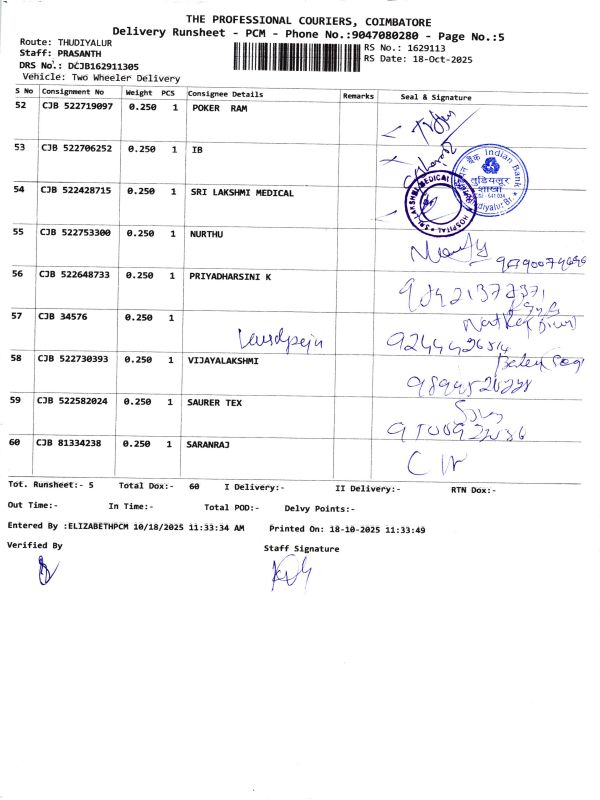 THE PROFESSIONAL COURIERS, COIMBATORE
Delivery Runsheet - PCM - Phone No.:9047080280 - Page No.:5
Route: THUDIYALUR
RS No.: 1629113
Staff: PRASANTH
RS Date: 18-Oct-2025
DRS No.: DCJB162911305
Vehicle: Two Wheeler Delivery
S No Consignment No Weight PCS Consignee Details Remarks Seal & Signature
52 CJB 522719097 0.250 1 POKER RAM
53 CJB 522706252 0.250 1 IB
Indian Bank
शाखा
54 CJB 522428715 0.250 1 SRI LAKSHMI MEDICAL
SRI LAKSHMI MEDICAL HOSPITAL
55 CJB 522753300 0.250 1 NURTHU
56 CJB 522648733 0.250 1 PRIYADHARSINI K
57 CJB 34576 0.250 1
58 CJB 522730393 0.250 1 VIJAYALAKSHMI
59 CJB 522582024 0.250 1 SAURER TEX
60 CJB 81334238 0.250 1 SARANRAJ
Tot. Runsheet:- 5 Total Dox:- 60 I Delivery:- II Delivery:- RTN Dox:-
Out Time:- In Time:- Total POD:- Delvy Points:-
Entered By :ELIZABETHPCM 10/18/2025 11:33:34 AM Printed On: 18-10-2025 11:33:49
Verified By
Staff Signature